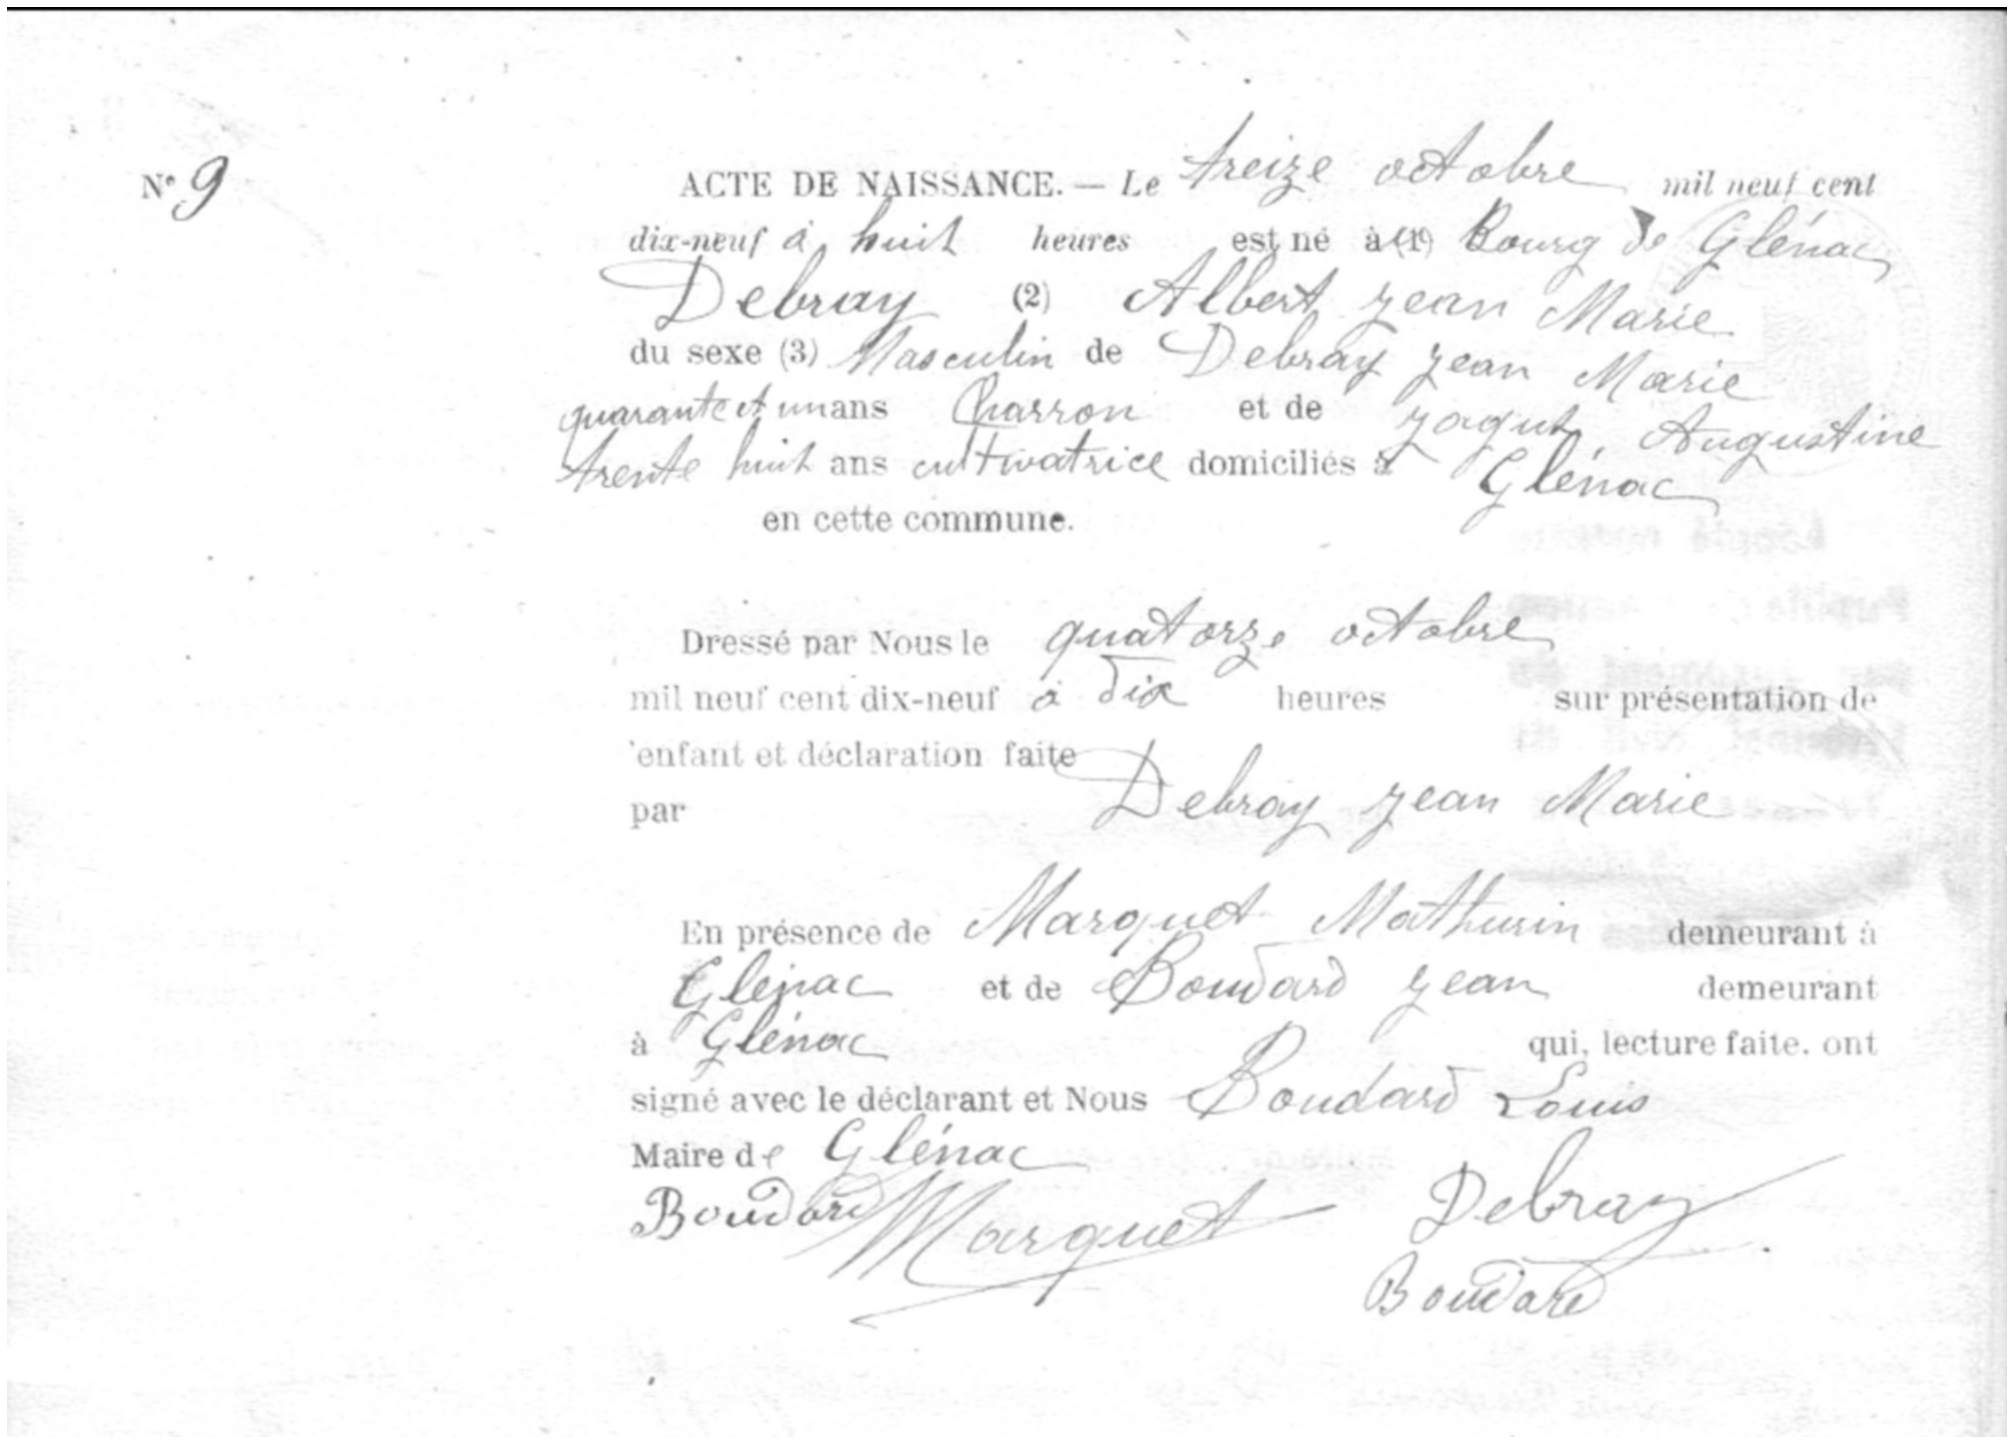 N° 9
ACTE DE NAISSANCE. — Le treize octobre mil neuf cent
dix-neuf à huit heures est né à (1) Bourg de Glénac
Debray (2) Albert Jean Marie
du sexe (3) Masculin de Debray Jean Marie
quarante et un ans Charron et de Jagut Augustine
trente huit ans cultivatrice domiciliés à Glénac
en cette commune.
Dressé par Nous le quatorze octobre
mil neuf cent dix-neuf à dix heures sur présentation de
'enfant et déclaration faite
par Debray Jean Marie
En présence de Marquet Mathurin demeurant à
Glénac et de Boudard Jean demeurant
à Glénac qui, lecture faite. ont
signé avec le déclarant et Nous Boudard Louis
Maire de Glénac
Boudard Marquet Debray
Boudard